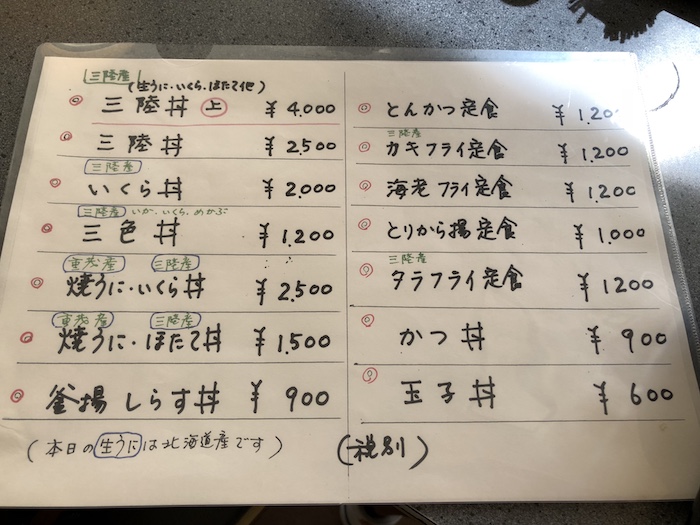 三陸産
(生うに・いくら・ほたて他)
◎ 三陸丼 上 ¥4,000
◎ 三陸丼 ¥2,500
三陸産
◎ いくら丼 ¥2,000
三陸産 いか・いくら・めかぶ
◎ 三色丼 ¥1,200
三陸産
◎ 焼うに・いくら丼 ¥2,500
三陸産
◎ 焼うに・ほたて丼 ¥1,500
◎ 釜揚しらす丼 ¥900
(本日の生うには北海道産です)
◎ とんかつ定食 ¥1,200
三陸産
◎ カキフライ定食 ¥1,200
◎ 海老フライ定食 ¥1,200
◎ とりから揚定食 ¥1,000
三陸産
◎ タラフライ定食 ¥1200
◎ かつ丼 ¥900
◎ 玉子丼 ¥600
(税別)